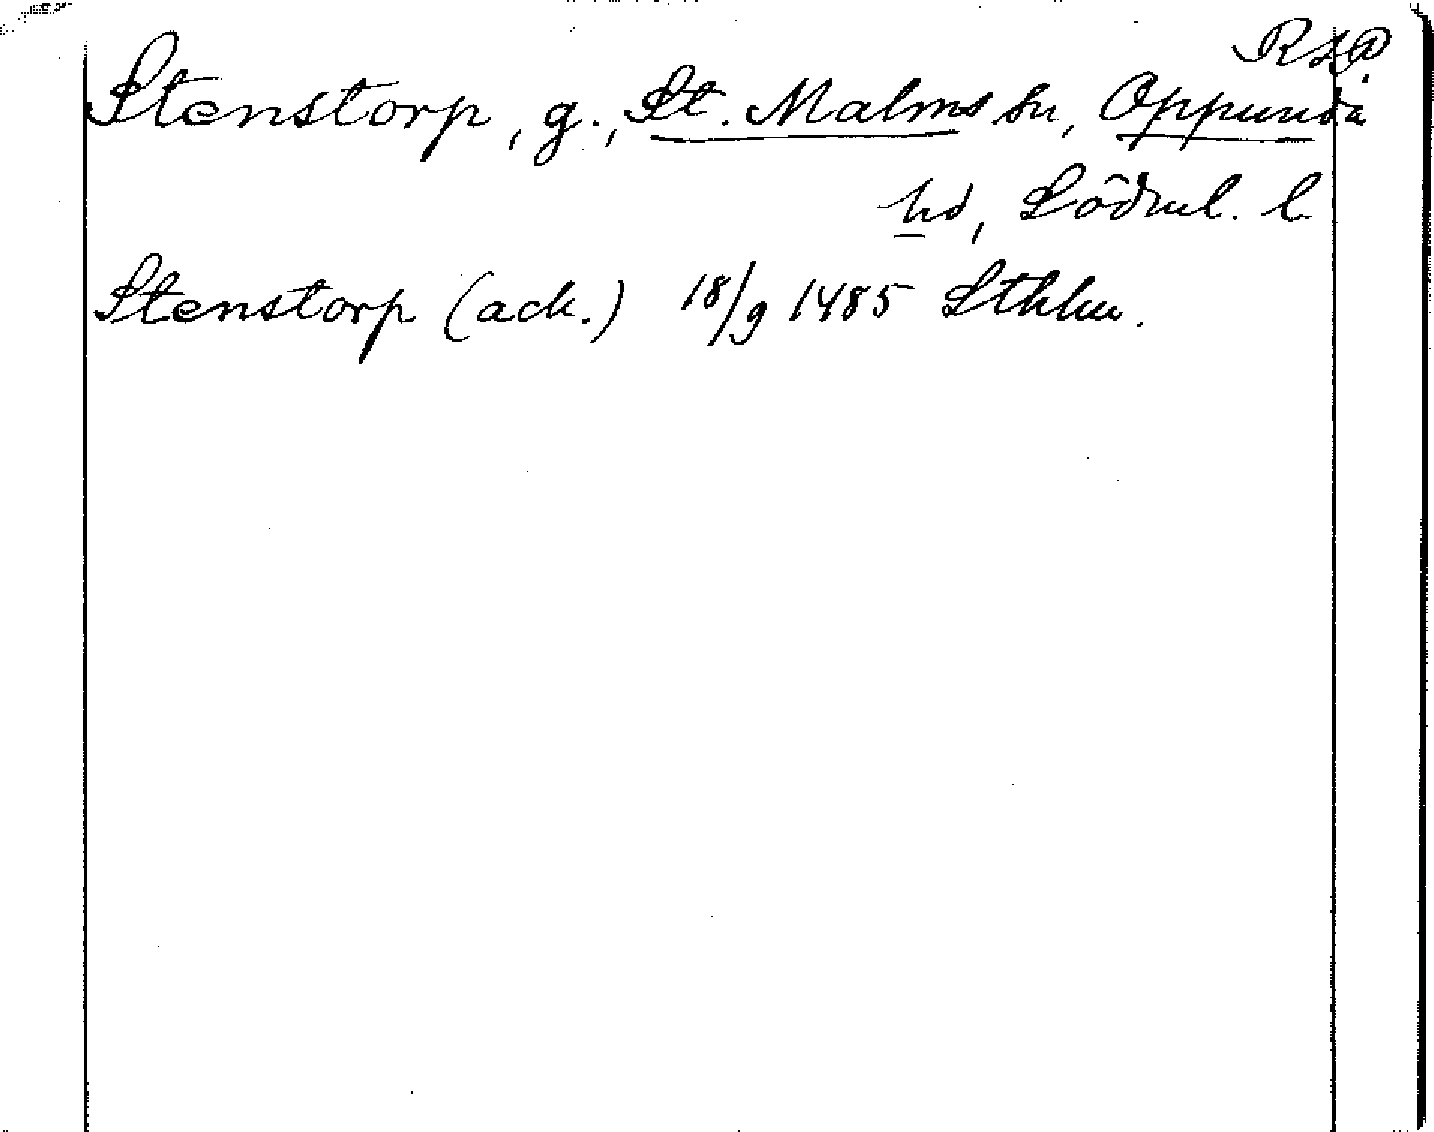 RAp
Stenstorp, g., St. Malms sn, Oppunda
hd, Södml. l.
Stenstorp (ack.) 18/9 1485 Sthlm.